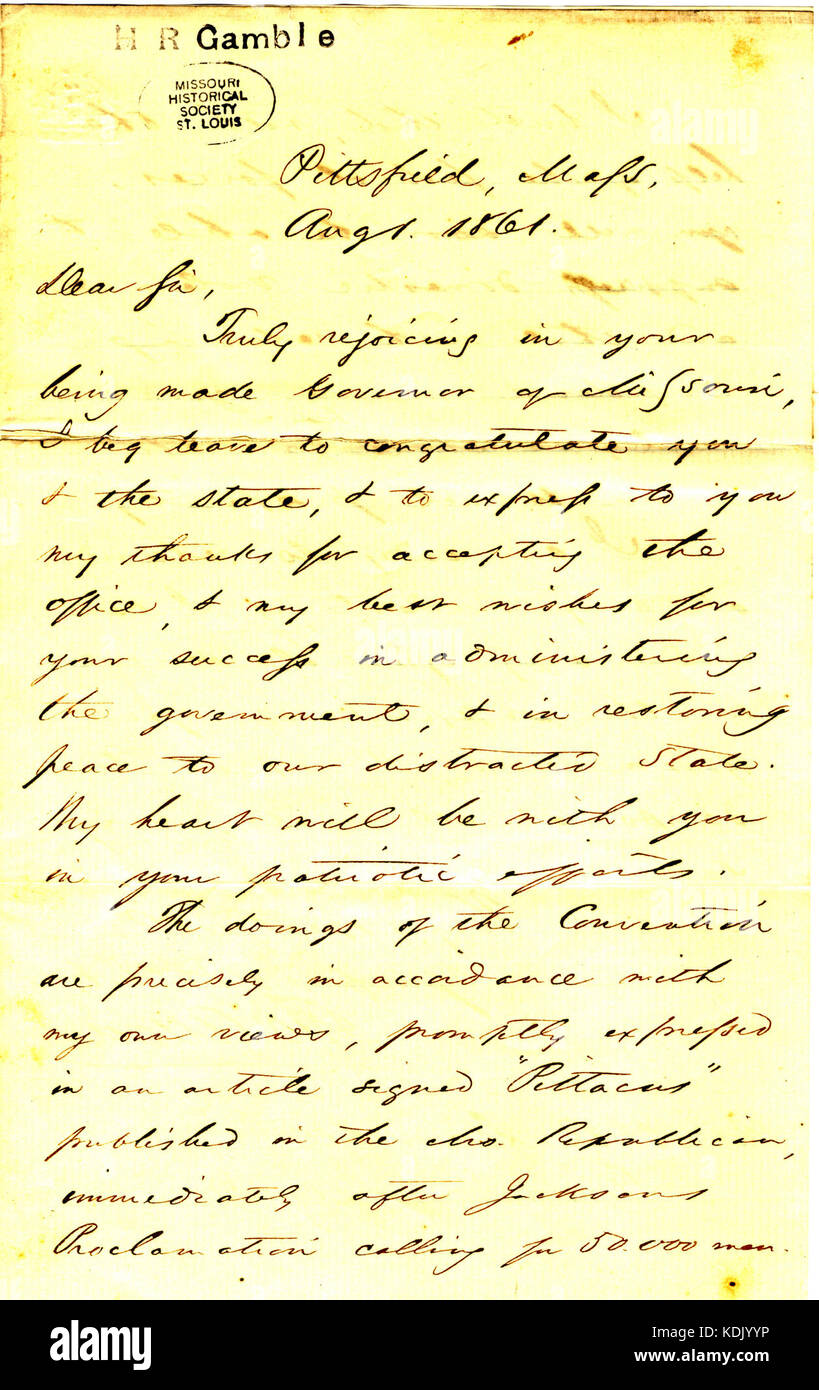 H R Gamble
MISSOURI
HISTORICAL
SOCIETY
ST. LOUIS
Pittsfield, Mass,
Aug 1. 1861.
Dear Sir,
Truly rejoicing in your
being made Governor of Missouri,
I beg leave to congratulate you
& the state, & to express to you
my thanks for accepting the
office, & my best wishes for
your success in administering
the government, & in restoring
peace to our distracted State.
My heart will be with you
in your patriotic efforts.
The doings of the Convention
are precisely in accordance with
my own views, promptly expressed
in an article signed "Pittacus"
published in the Mo. Republican,
immediately after Jacksons
Proclamation calling for 50.000 men.
alamy
alamy
Image ID: KDJYYP
www.alamy.com